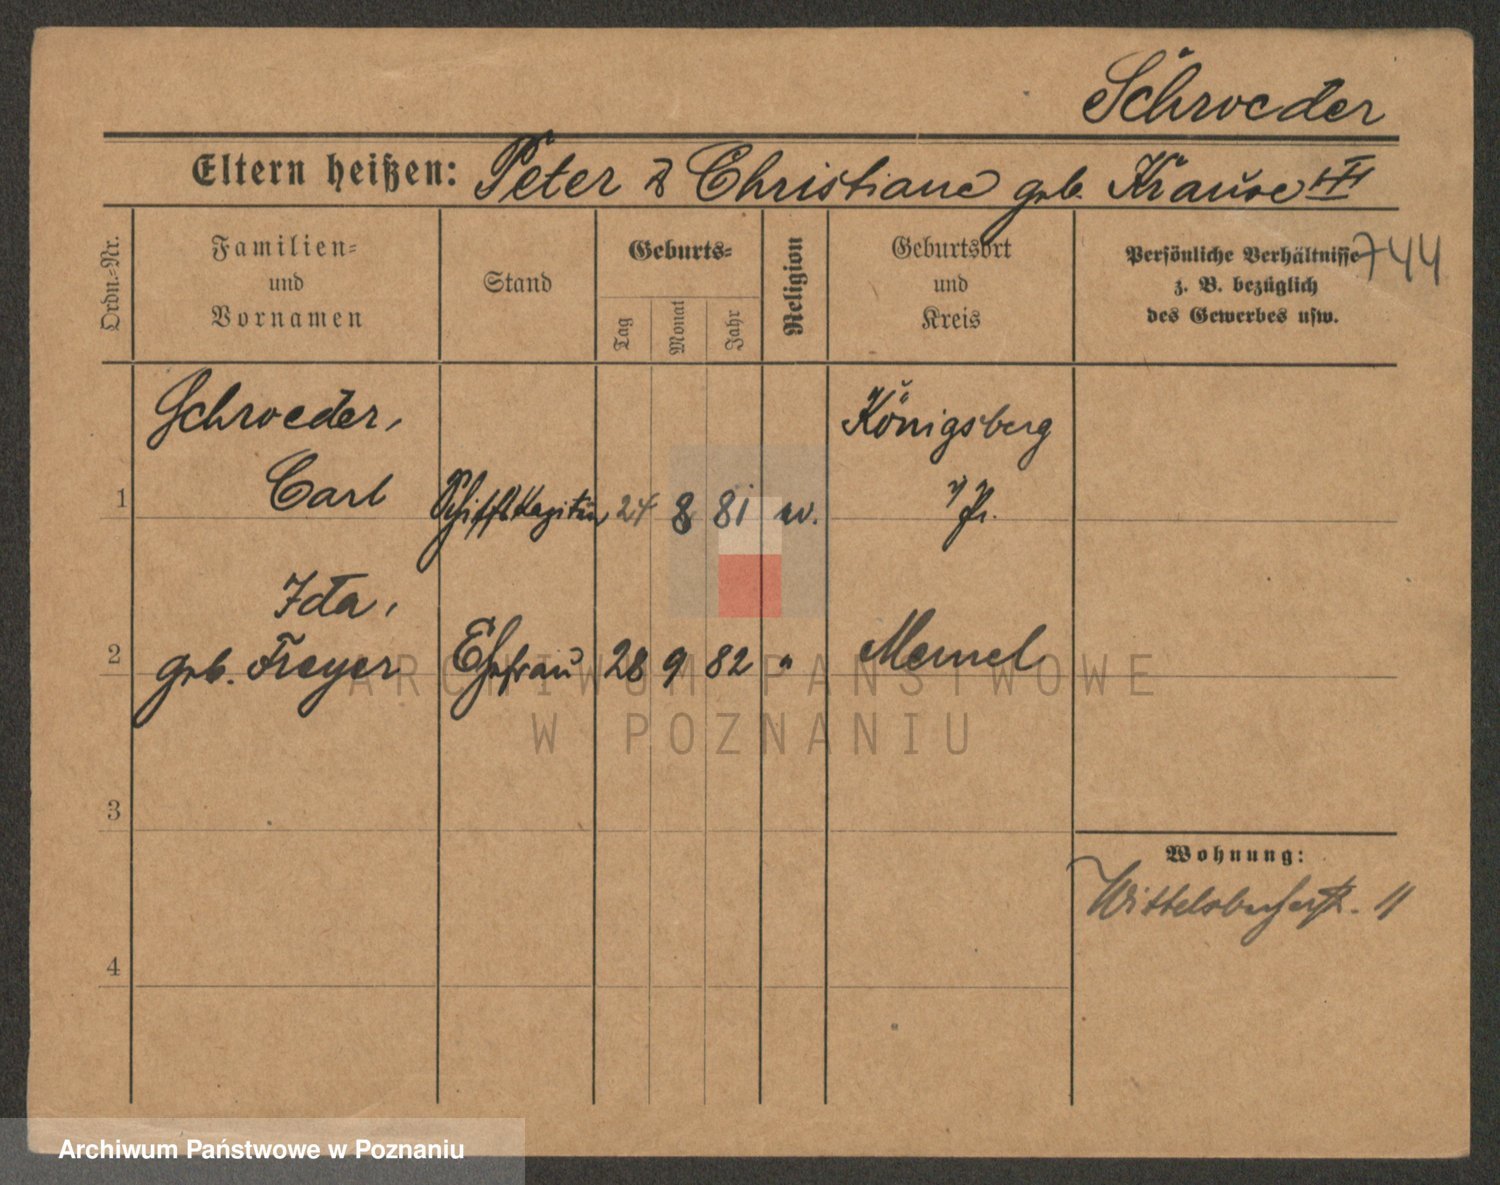 Schroeder
Eltern heißen: Peter & Christiane geb. Krause III
Ordn.-Nr.
Familien-
und
Vornamen
Stand
Geburts-
Tag
Monat
Jahr
Religion
Geburtsort
und
Kreis
Persönliche Verhältnisse
z. B. bezüglich
des Gewerbes usw.
744
Schroeder,
Carl
1
Schiffskapitän
24 8 81
ev.
Königsberg
i/Pr.
Ida,
2
geb. Freyer
Ehefrau
28 9 82
"
Memel
3
4
Wohnung:
Wittelsbacherstr. 11
ARCHIWUM PAŃSTWOWE
W POZNANIU
Archiwum Państwowe w Poznaniu